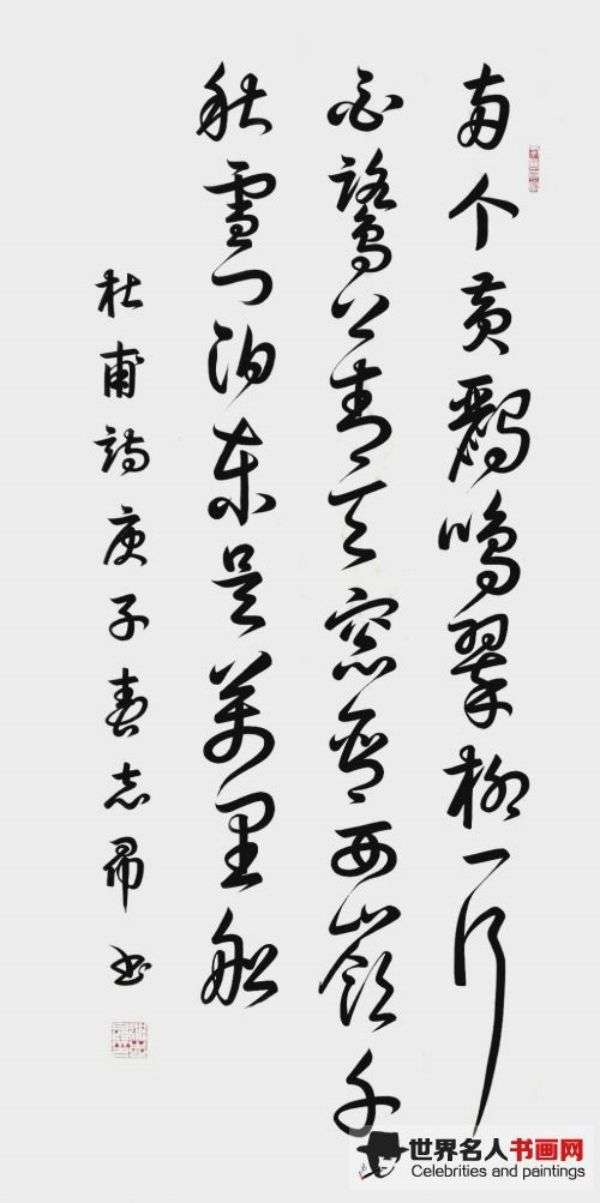 两个黄鸝鳴翠柳一行
白鷺上青天窓含西嶺千
秋雪门泊东吴萬里船
杜甫詩庚子春志书
世界名人书画网
Celebrities and paintings